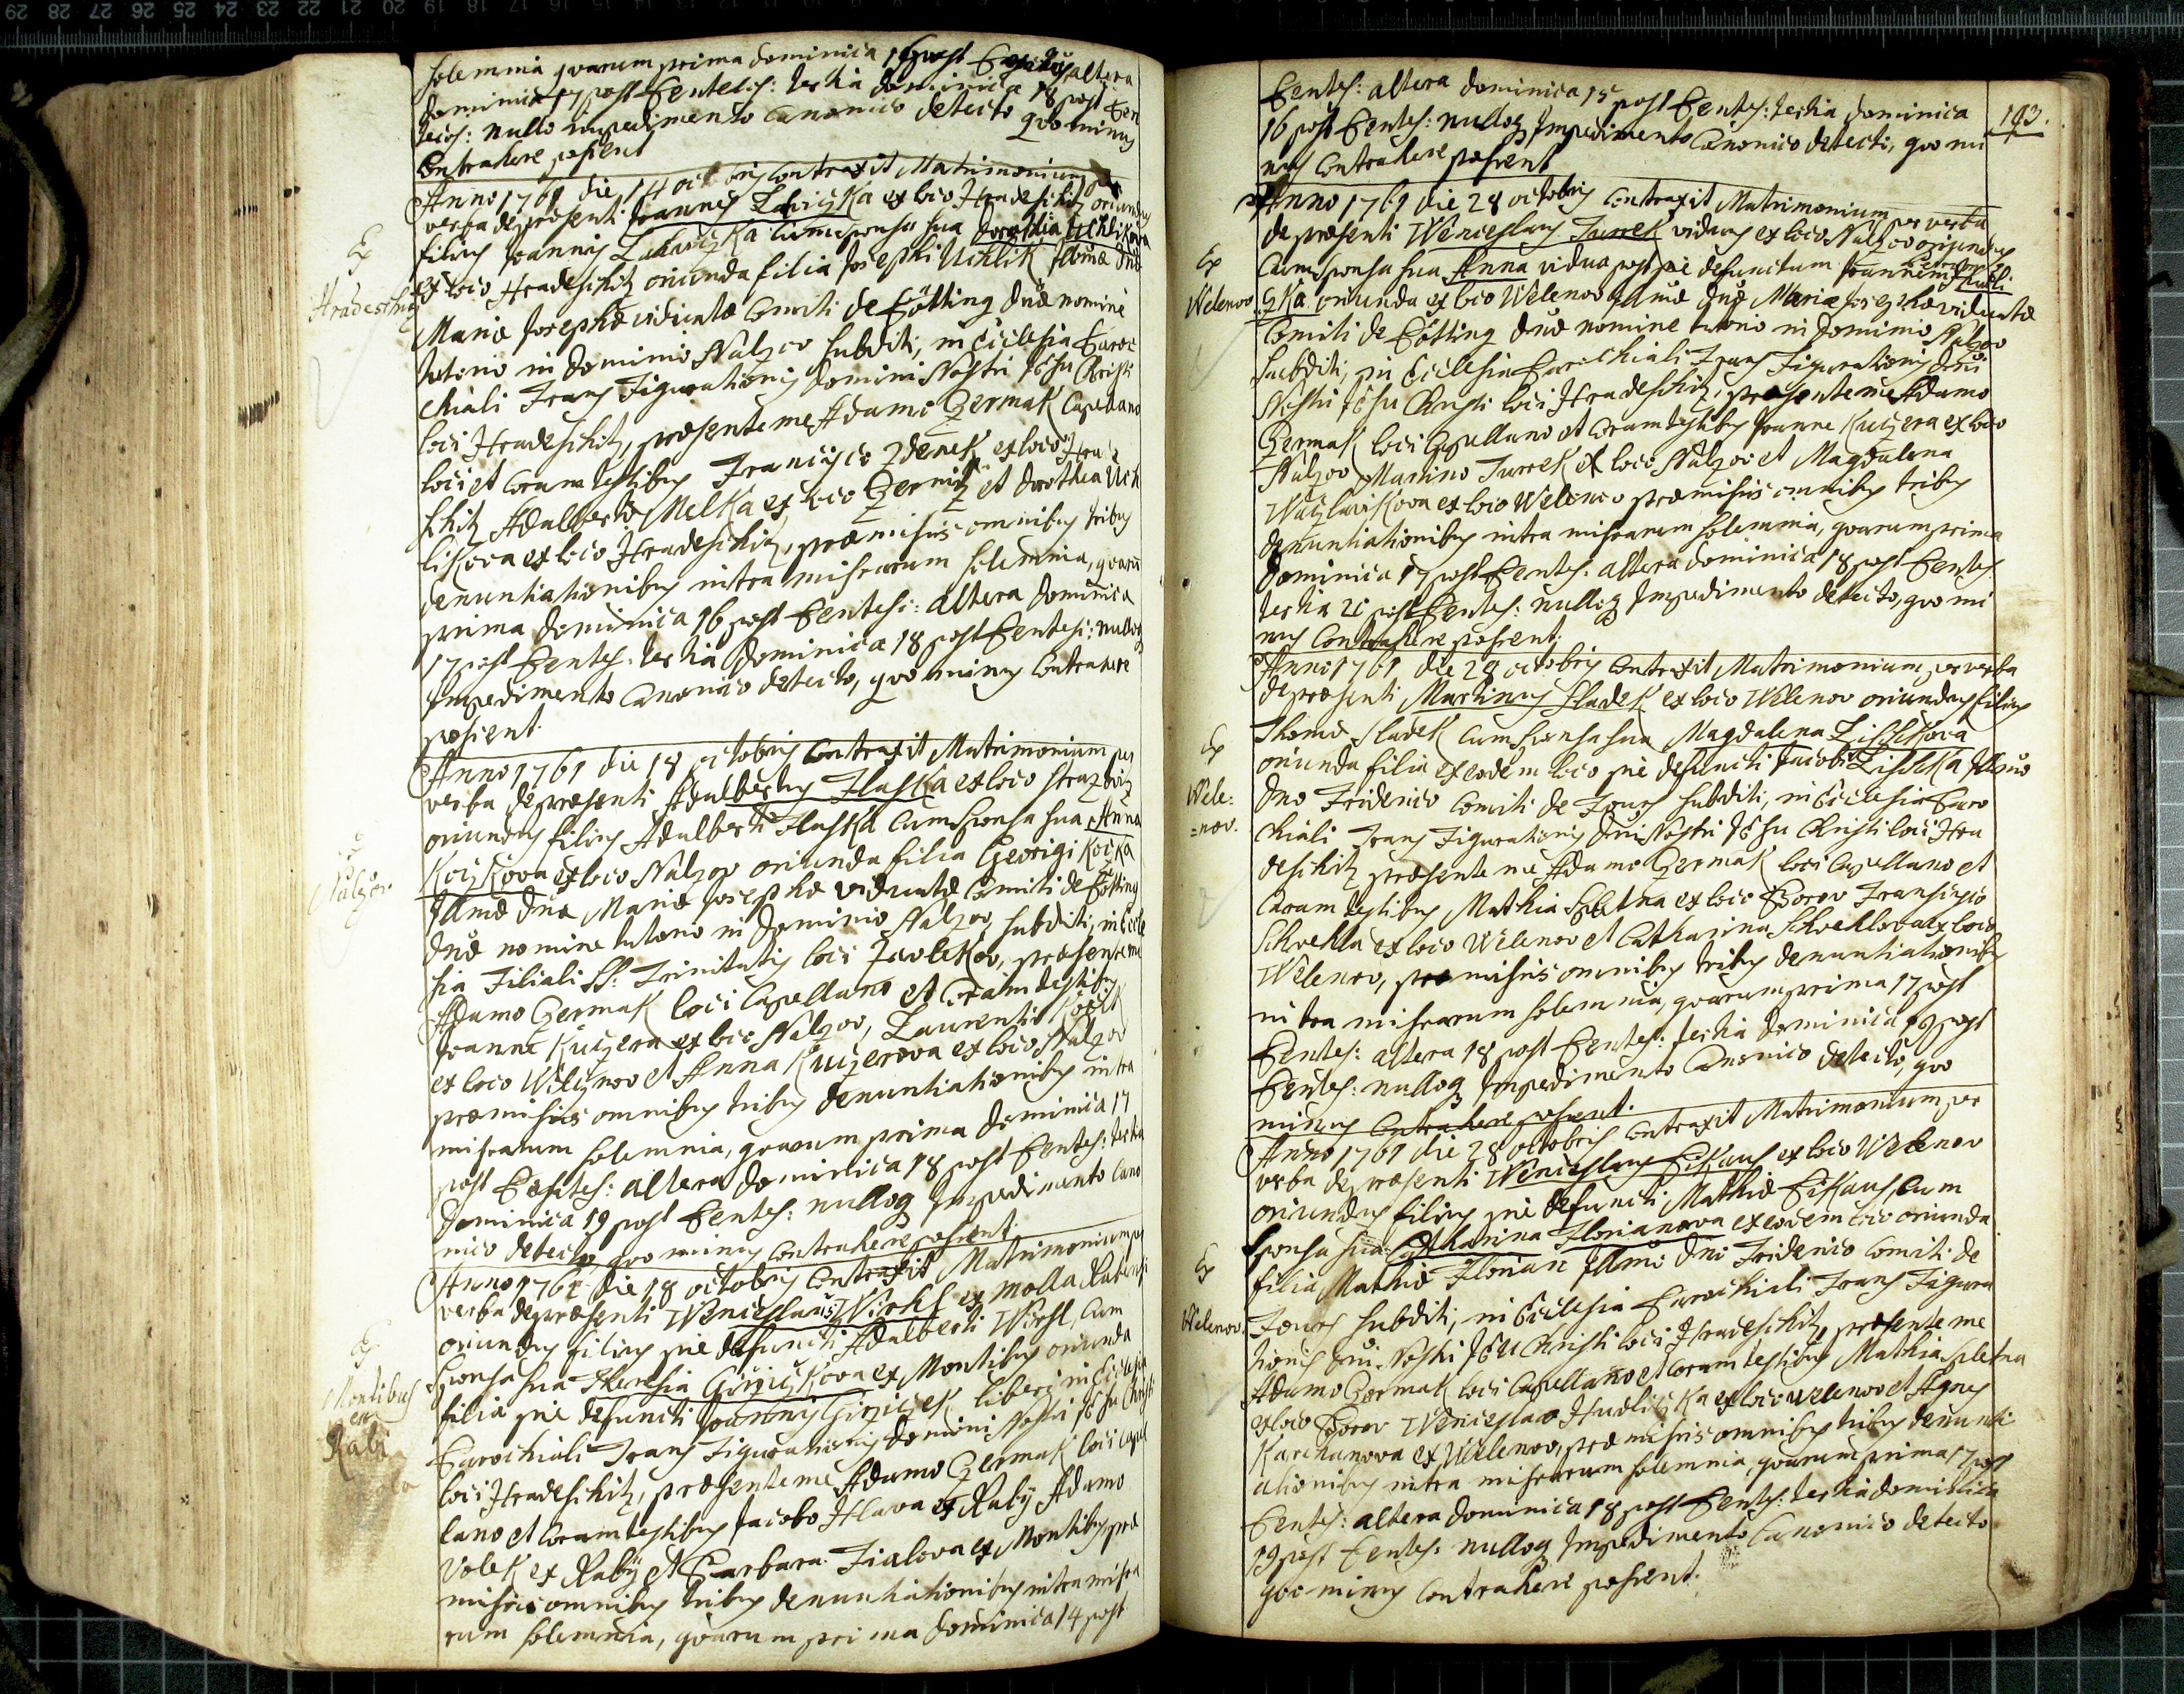 solemnia quarum prima dominica 16 post altera
dominica 17 post Pentecos: tertia dominica 18 post Pen
tecos: nullo impedimento canonico detecto quo minus
Contrahere possent
Anno 1761 die 14 octobris contraxit Matrimonium per
verba de præsenti Joannes ex loco Hradeschitz oriundus
filius Joannis cum sponsa sua Dorothea
ex loco Hradeschitz oriunda filia Josephi Uchlik Illmæ Dnæ
Ex
Hradeschitz
Mariæ Josephæ viduatæ Comiti de Pötting Dnæ nomine
tutorio in dominio Nalzov subditi, in Ecclesia Paroc
chiali Trans Figurationis Domini Nostri Jesu Christi
loci Hradeschitz, præsente me Adamo Czermak Capellano
loci et Coram testibus Francisco Zdenek ex loco Hrade
schitz Adalberto Melka ex loco et Dorothea Uch
likova ex loco Hradeschitz, præmissis omnibus tribus
denuntiationibus intra missarum solemnia, quarum
prima dominica 16 post Pentes: altera dominica
17 post Pentes: tertia Dominica 18 post Pentes: nulloq
Impedimento Canonico detecto, quo minus Contrahere
possent
Anno 1761 die 18 octobris Contraxit Matrimonium per
verba de præsenti Adalbertus Fluska ex loco
oriundus filius Adalberti Fluska Cum Sponsa sua Anna
Koczkova ex loco Nalzov oriunda filia Georigi Koczka
Nalzov
Illmæ Dnæ Mariæ Josephæ viduatæ Comiti de Pötting
Dnæ nomine tutorio in Dominio Nalzov, subditi, in Eccle
sia Filiali SS: Trinitatis loci præsente me
Adamo Czermak loci Capellano et Coram testibus
Joanne Kuczera ex loco Nalzov, Laurentio
ex loco et Anna Kuczerova ex loco Nalzov
præmissis omnibus tribus denuntiationibus intra
missarum solemnia, quarum prima Dominica 17
post Pentes: altera Dominica 18 post Pentes: tertia
Dominica 19 post Pentes: nulloq Impedimento Cano
nico detecto quo minus Contrahere possent
Anno 1761 die 18 octobris Contraxit Matrimonium per
verba de præsenti Wenceslaus ex molla
oriundus filius pie defuncti Adalberti Cum
Ex
Montibus
Rabi
Sponsa sua Theresia ex Montibus oriunda
filia pie defuncti Joannis liberi, in Ecclesia
Parochiali Trans Figurationis domini Nostri Jesu Christi
loci Hradeschitz, præsente me Adamo Czermak loci Capel
lano et Coram testibus Jacobo Hlava ex Raby Adamo
Volek ex Raby et Barbara Fialova ex Montibus præ
missis omnibus tribus denuntiationibus intra missa
rum solemnia, quarum prima dominica 14 post
Pentes: altera dominica 15 post Pentes: tertia dominica
193.
16 post Pentes: nulloq Impedimento Canonico detecti, quo mi
nus Contrahere possent
Anno 1761 die 28 octobris Contraxit Matrimonium per verba
de præsenti Wenceslaus Turrek viduus ex loco Nalzov oriundus
Ex
Welenov
Cum Sponsa sua Anna vidua post pie defunctum Joannem
oriunda ex loco Welenov Illmæ Dnæ Mariæ Josephæ viduatæ
Comiti de Pötting Dnæ nomine tutorio in Dominio Nalzov
subditi, in Ecclesia Parochiali Trans Figurationis Dni
Nostri Jesu Christi loci Hradeschitz, præsente me Adamo
Czermak loci Capellano et Coram testibus Joanne Kuczera ex loco
Nalzov Martino Turrek ex loco Nalzov et Magdalena
ex loco Welenov præmissis omnibus tribus
denuntiationibus intra missarum solemnia, quarum prima
Dominica 17 post Pentes: altera dominica 18 post Pentes
tertia post Pentes: nulloq Impedimento detecto, quo mi
nus Contrahere possent:
Anno 1761 die 28 octobris Contraxit Matrimonium per verba
de præsenti Martinus Sladek ex loco Welenov oriundus filius
Thomæ Sladek Cum Sponsa sua Magdalena Zischkova
Ex
Wele:
=nov.
oriunda filia ex eodem loco pie defuncti Jacobi Zischka Illmo
Dno Friderico Comiti de Tours subditi, in Ecclesia Paro
chiali Trans Figurationis Dni Nostri Jesu Christi loci Hra
deschitz præsente me Adamo Czermak loci Capellano et
Coram testibus Mathia Spletna ex loco Borov Francisco
Schrehla ex loco Welenov et Catharina Schrehlova ex loco
Welenov, præmissis omnibus tribus denuntiationibus
intra missarum solemnia, quarum prima 17 post
Pentes: altera 18 post Pentes: tertia dominica 19 post
Pentes: nulloq Impedimento Canonico detecto, quo
minus Contrahere possent.
Anno 1761 die 28 octobris Contraxit Matrimonium per
verba de præsenti Wenceslaus Pikaus ex loco Welenov
oriundus filius pie defuncti Mathiæ Pikaus, Cum
Sponsa sua Catharina Florianova ex eodem loco oriunda
Ex
Welenov.
filia Mathiæ Florian Illmi Dni Friderico Comiti de
Tours subditi, in Ecclesia Parochiali Trans Figura
tionis Dni Nostri Jesu Christi loci Hradeschitz, præsente me
Adamo Czermak loci Capellano et Coram testibus Mathia Spletna
ex loco Borov Wenceslao ex loco Welenov et Agnes
Karchanova ex Welenov, præmissis omnibus tribus denunti
ationibus intra missarum solemnia, quarum prima 17 post
Pentes: altera dominica 18 post Pentes: tertia dominica
19 post Pentes: nulloq Impedimento Canonico detecto
quo minus Contrahere possent.